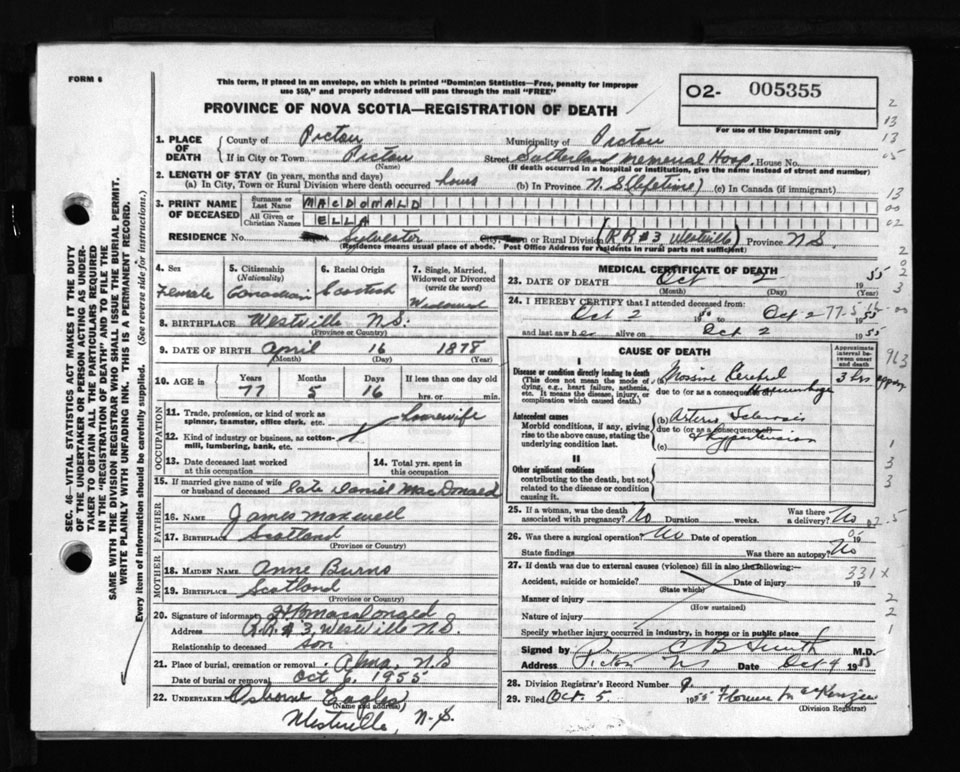 FORM 6
This form, if placed in an envelope, on which is printed "Dominion Statistics—Free, penalty for improper
use $50," and properly addressed will pass through the mail "FREE"
PROVINCE OF NOVA SCOTIA—REGISTRATION OF DEATH
02- 005355
For use of the Department only
1. PLACE OF DEATH { County of Pictou Municipality of Pictou
If in City or Town Pictou Street Sutherland Memorial Hosp. House No.
(Name) (If death occurred in a hospital or institution, give the name instead of street and number)
2. LENGTH OF STAY (in years, months and days)
(a) In City, Town or Rural Division where death occurred hours (b) In Province N.S. (lifetime) (c) In Canada (if immigrant)
3. PRINT NAME OF DECEASED { Surname or Last Name MACDONALD
All Given or Christian Names ELLA
RESIDENCE No. Sylvester City, Town or Rural Division (RR#3 Westville) Province N.S
(Residence means usual place of abode. Post Office Address for residents in rural parts not sufficient)
4. Sex Female
5. Citizenship (Nationality) Canadian
6. Racial Origin Scottish
7. Single, Married, Widowed or Divorced (write the word) Widowed
8. BIRTHPLACE Westville N.S.
(Province or Country)
9. DATE OF BIRTH April 16 1878
(Month) (Day) (Year)
10. AGE in Years 77 Months 5 Days 16 If less than one day old hrs. or min.
OCCUPATION
11. Trade, profession, or kind of work as spinner, teamster, office clerk, etc. Housewife
12. Kind of industry or business, as cotton-mill, lumbering, bank, etc.
13. Date deceased last worked at this occupation
14. Total yrs. spent in this occupation
15. If married give name of wife or husband of deceased Late Daniel MacDonald
FATHER
16. NAME James Maxwell
17. BIRTHPLACE Scotland
(Province or Country)
MOTHER
18. MAIDEN NAME Anne Burns
19. BIRTHPLACE Scotland
(Province or Country)
20. Signature of informant MacDonald
Address R.R.#3, Westville N.S.
Relationship to deceased son
21. Place of burial, cremation or removal Alma, N.S
Date of burial or removal Oct 6, 1955
22. UNDERTAKER Osborne Eagles
(Name and address)
Westville, N.S.
MEDICAL CERTIFICATE OF DEATH
23. DATE OF DEATH Oct 2 1955
(Month) (Day) (Year)
24. I HEREBY CERTIFY that I attended deceased from:
Oct 2 1955 to Oct 2 1955
and last saw her alive on Oct 2 1955
77-5-16
CAUSE OF DEATH
Approximate interval between onset and death
I
Disease or condition directly leading to death
(This does not mean the mode of dying, e.g., heart failure, asthenia, etc. It means the disease, injury, or complication which caused death.)
(a) Massive Cerebral Haemorrhage 3 hrs
due to (or as a consequence of)
Antecedent causes
Morbid conditions, if any, giving rise to the above cause, stating the underlying condition last.
(b) Arterio Sclerosis
due to (or as a consequence of)
& Hypertension
(c)
II
Other significant conditions
contributing to the death, but not related to the disease or condition causing it.
25. If a woman, was the death associated with pregnancy? No Duration weeks. Was there a delivery? No
26. Was there a surgical operation? No Date of operation 19
State findings Was there an autopsy? No
27. If death was due to external causes (violence) fill in also the following:—
Accident, suicide or homicide? Date of injury 19
(State which)
331x
Manner of injury
(How sustained)
Nature of injury
Specify whether injury occurred in industry, in home or in public place
Signed by C B Smith M.D.
Address Pictou NS Date Oct 4 1955
28. Division Registrar's Record Number 9.
29. Filed Oct. 5 1955 Florence McKenzie
(Division Registrar)
SEC. 46—VITAL STATISTICS ACT MAKES IT THE DUTY
OF THE UNDERTAKER OR PERSON ACTING AS UNDER-
TAKER TO OBTAIN ALL THE PARTICULARS REQUIRED
IN THE "REGISTRATION OF DEATH" AND TO FILE THE
SAME WITH THE DIVISION REGISTRAR WHO SHALL ISSUE THE BURIAL PERMIT.
WRITE PLAINLY WITH UNFADING INK. THIS IS A PERMANENT RECORD.
Every item of information should be carefully supplied. (See reverse side for instructions.)